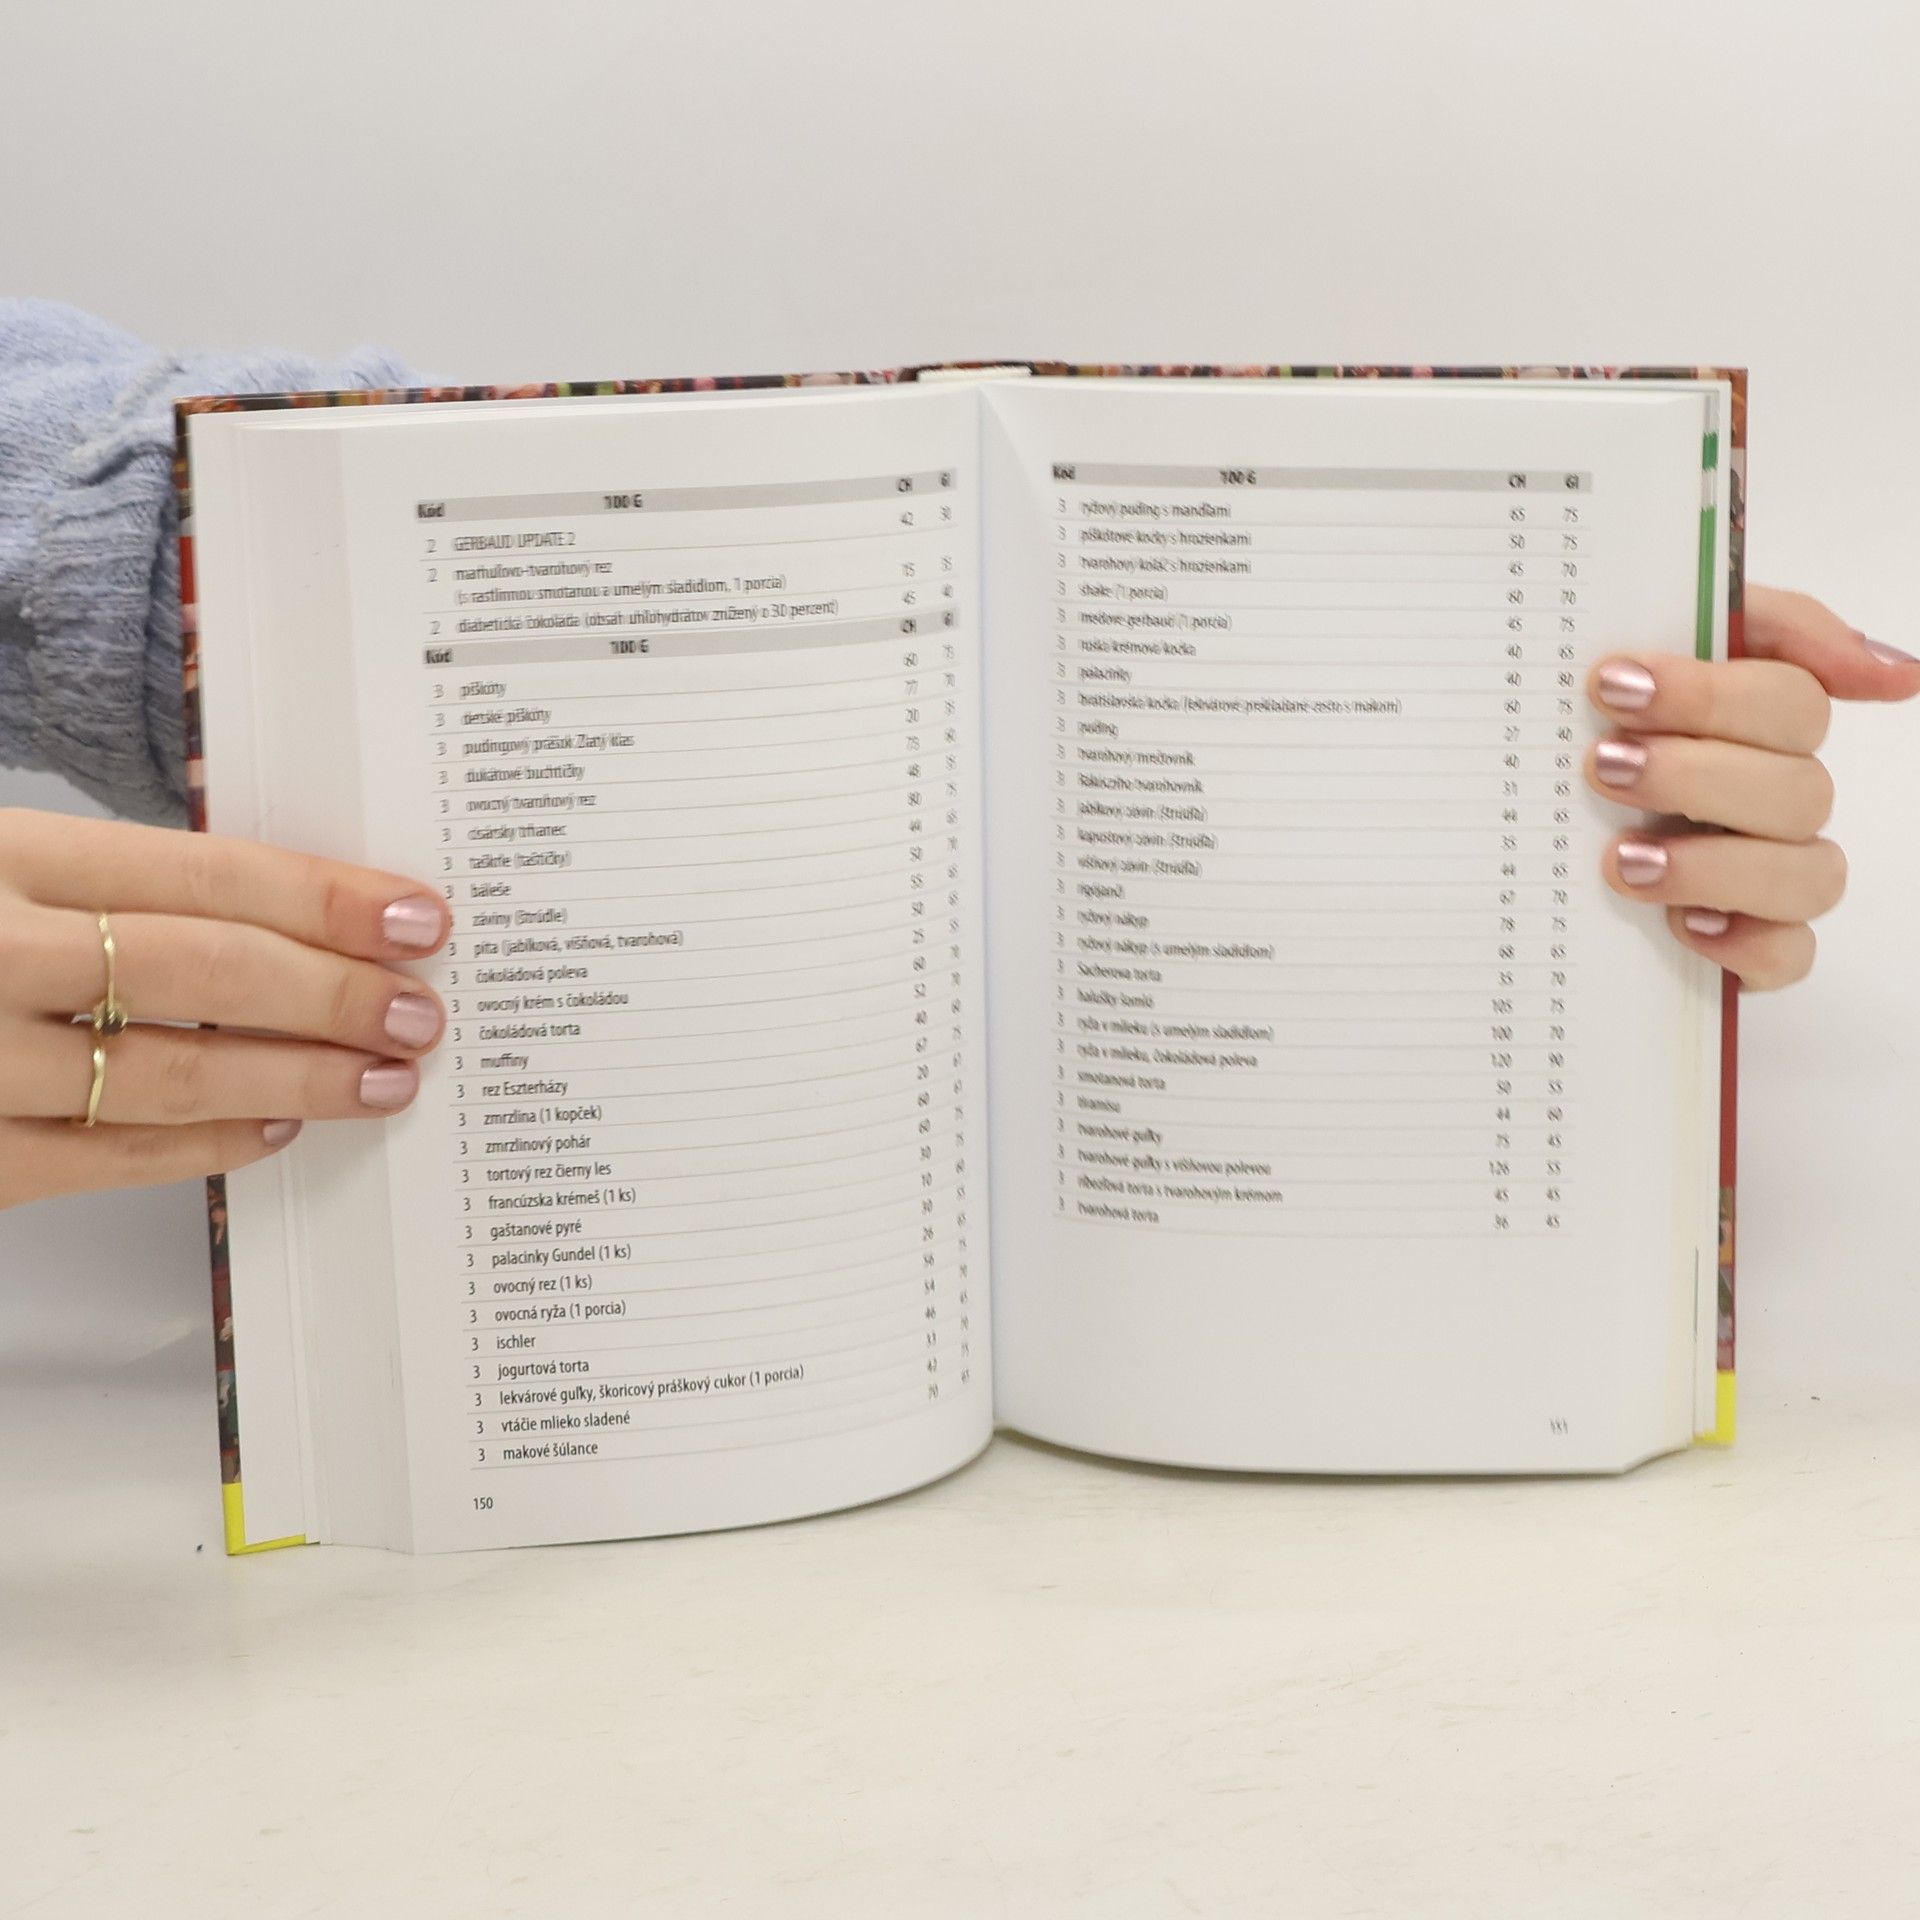 Kód 100 G CH GI
2 GERBAUD UPDATE 2 42 30
2 marhuľovo-tvarohový rez
(s rastlinnou smotanou a umelým sladidlom, 1 porcia) 15 35
2 diabetická čokoláda (obsah uhľohydrátov znížený o 30 percent) 45 40
Kód 100 G CH GI
3 piškóty 60 75
3 detské piškóty 77 70
3 pudingový prášok Zlatý klas 20 35
3 dukátové buchtičky 73 60
3 ovocný tvarohový rez 48 35
3 cisársky trhanec 80 75
3 taškrle (taštičky) 44 65
3 báleše 50 70
záviny (štrúdle) 55 65
3 pita (jablková, višňová, tvarohová) 50 65
3 čokoládová poleva 25 55
3 ovocný krém s čokoládou 60 70
3 čokoládová torta 52 70
3 muffiny 40 60
3 rez Eszterházy 67 75
3 zmrzlina (1 kopček) 20 61
3 zmrzlinový pohár 60 61
3 tortový rez čierny les 60 75
3 francúzska krémeš (1 ks) 30 75
3 gaštanové pyré 10 60
3 palacinky Gundel (1 ks) 30 55
3 ovocný rez (1 ks) 26 65
3 ovocná ryža (1 porcia) 56 75
3 ischler 54 70
3 jogurtová torta 46 65
3 lekvárové guľky, škoricový práškový cukor (1 porcia) 33 70
3 vtáčie mlieko sladené 42 75
3 makové šúlance 70 65
150
Kód 100 G CH GI
3 ryžový puding s mandľami 65 75
3 piškótové kocky s hrozienkami 50 75
3 tvarohový koláč s hrozienkami 45 70
3 shake (1 porcia) 60 70
3 medové gerbaud (1 porcia) 45 75
3 ruská krémová kocka 40 65
3 palacinky 40 80
3 bratislavská kocka (lekvárové prekladané cesto s makom) 60 75
3 puding 27 40
3 tvarohový medovník 40 65
3 Rákócziho tvarohovník 31 65
3 jablkový závin (štrúdľa) 44 65
3 kapustový závin (štrúdľa) 35 65
3 višňový závin (štrúdľa) 44 65
3 rigójanči 67 70
3 ryžový nákyp 78 75
3 ryžový nákyp (s umelým sladidlom) 68 65
3 Sacherova torta 35 70
3 halušky šomló 105 75
3 ryža v mlieku (s umelým sladidlom) 100 70
3 ryža v mlieku, čokoládová poleva 120 90
3 smotanová torta 50 55
3 tiramisu 44 60
3 tvarohové guľky 75 45
3 tvarohové guľky s višňovou polevou 126 55
3 ríbezľová torta s tvarohovým krémom 45 45
3 tvarohová torta 36 45
151